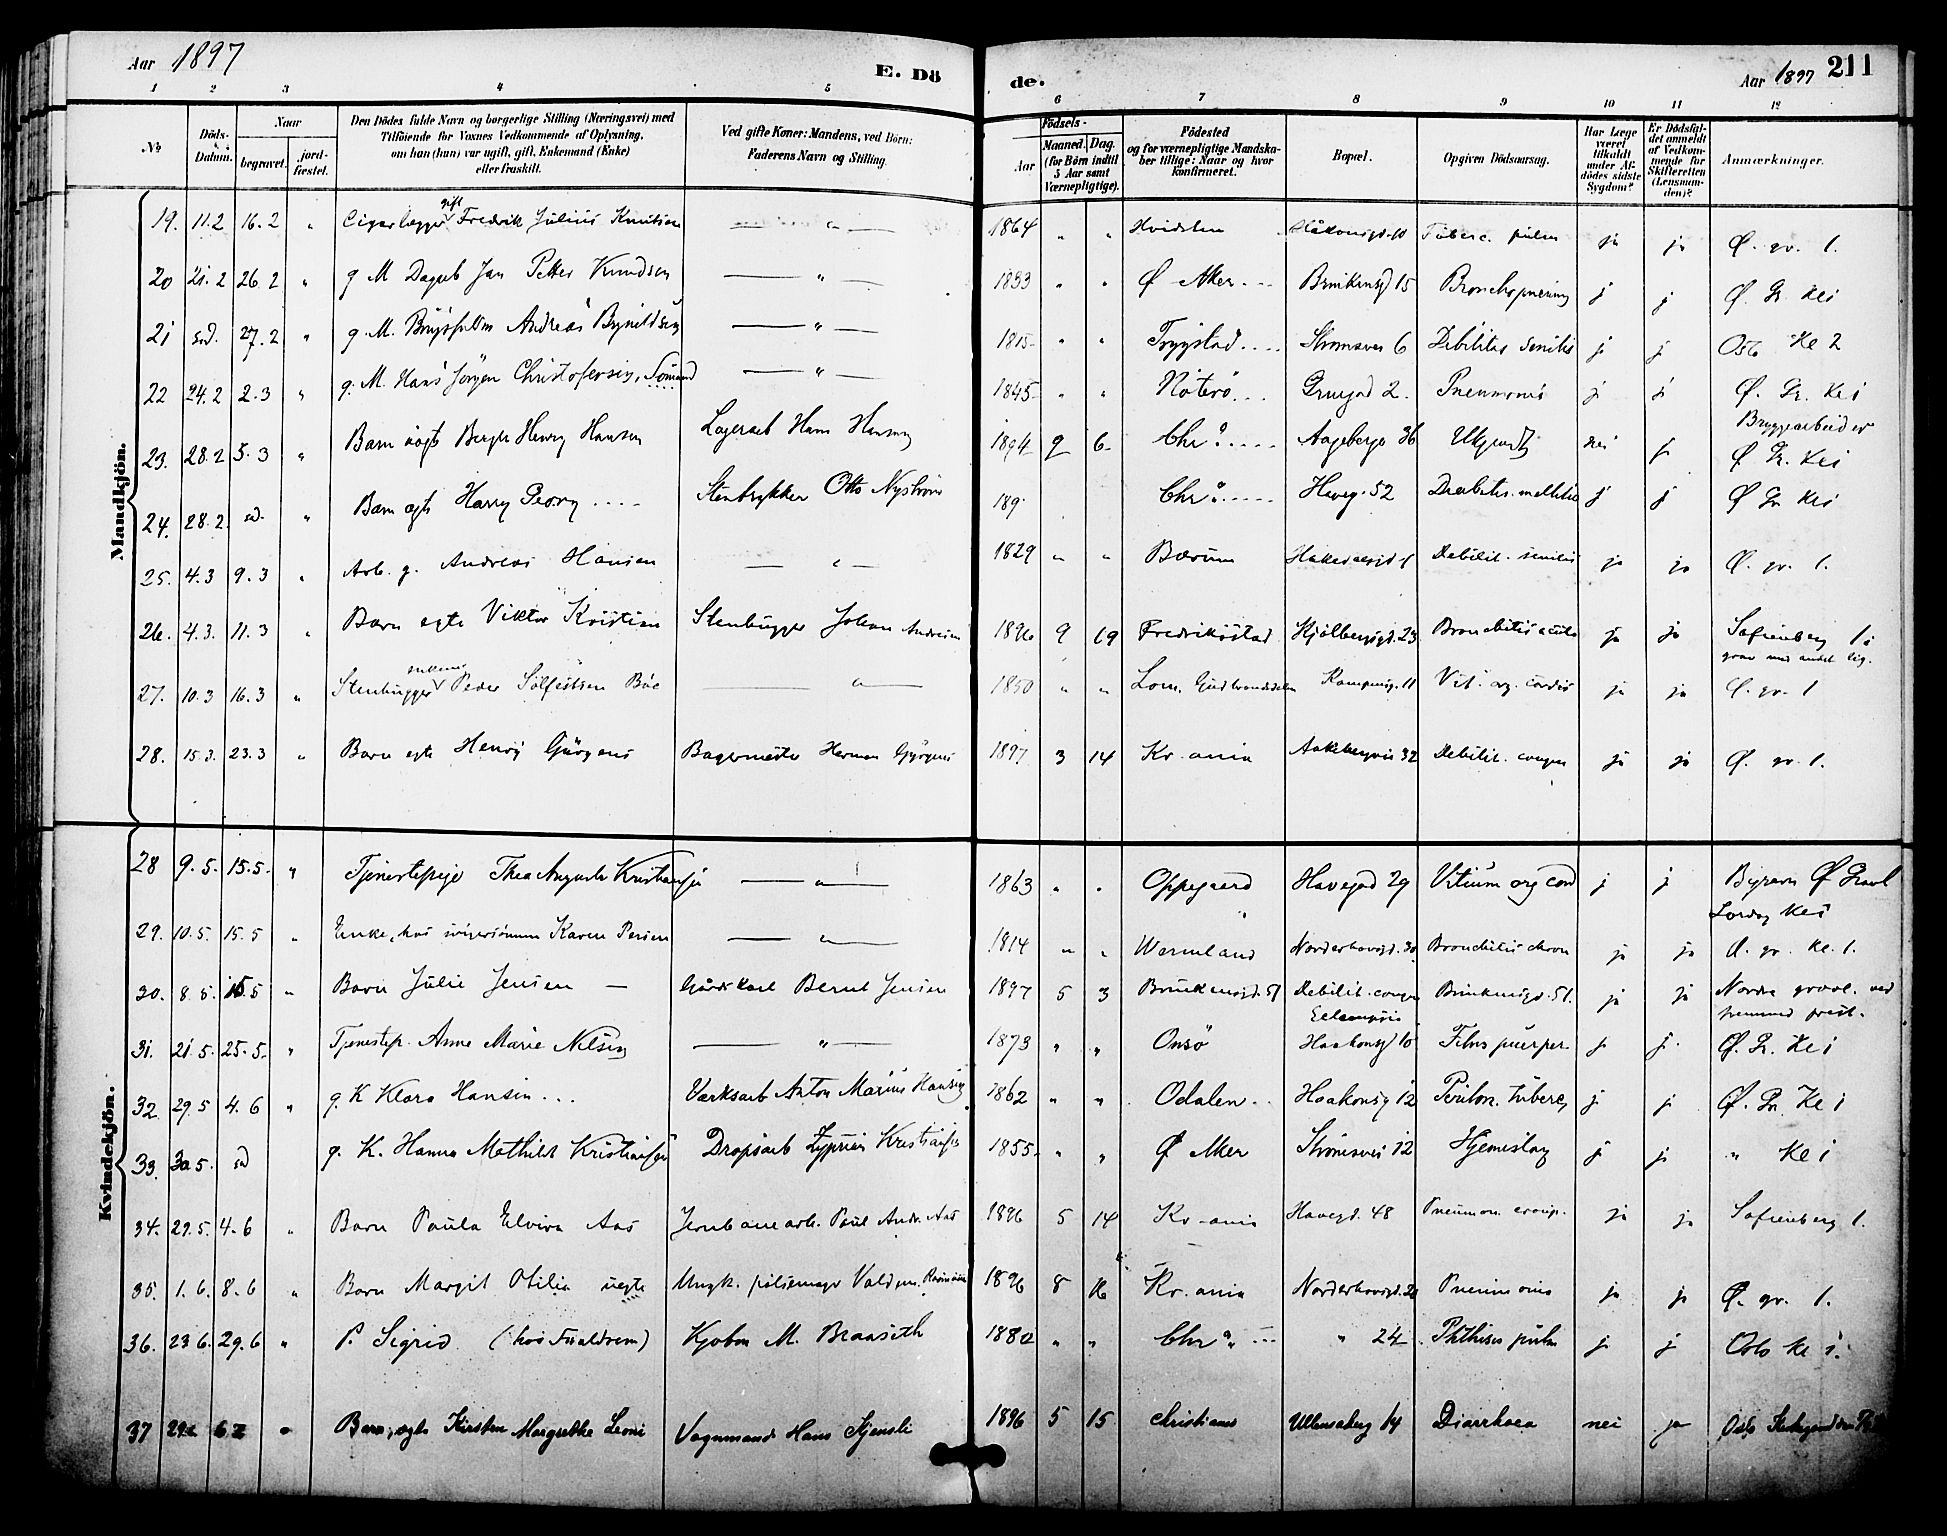 Aar 1897 E. Dö de. Aar 1897 211
1 2 3 4 5 6 7 8 9 10 11 12
No
Döds-Datum.
Naar
begravet.
jord-fæstet.
Den Dödes fulde Navn og borgerlige Stilling (Næringsvei) med
Tilföiende for Voxnes Vedkommende af Oplysning,
om han (hun) var ugift, gift, Enkemand (Enke)
eller fraskilt.
Ved gifte Koner: Mandens, ved Börn:
Faderens Navn og Stilling.
Födsels-
Aar
Maaned. Dag.
(for Börn indtil
5 Aar samt
Værnepligtige).
Födested
og for værnepligtige Mandska-
ber tillige: Naar og hvor
konfirmeret.
Bopæl.
Opgiven Dödsaarsag.
Har Læge
været
tilkaldt
under Af-
dödes sidste
Sygdom?
Er Dödsfal-
det anmeldt
af Vedkom-
mende for
Skifteretten
(Lensman-
den)?
Anmærkninger.
Mandkjön.
19. 11.2 16.2 " Cigarlægger gift Fredrik Julius Knutsen — " — 1864 " " Hvidsten Håkonsgd. 10 Tuberc. pulm ja ja Ø. gr. 1.
20 21.2 26.2 " g M Dagarb Jan Petter Knudsen — " — 1833 " " Ø Aker Brinkensgd 15 Bronchopneumoni j j Ø. Gr. Kl 1
21 sd. 27.2 " g. M. Andreas — " — 1815 " " Trygstad Strømsvei 6 Debilitas senilis j j Oslo Kl 2
22 24.2 2.3 " g. M. Hans Jørgen Christofersen, Sömand — " — 1845 " " Nöterö Gruegad 2. Pneumoni j j Ø. Gr. Kl 1
23. 28.2 5.3 " Barn uægt Birger Henry Hansen Lagerarb Hans Hansen 1894 9 6 Chr.a Aagebergv 36 Ukjendt nei j Bryggearbeider Ø Gr. Kl 1
24. 28.2 sd. " Barn ægt Harry Georg Stentrykker Otto Nyström 189 Chr.a Haveg. 52 Diabetes mellitus j j Ø Gr Kl 1
25. 4.3 9.3 " Arb. g. Andreas Hansen — " — 1829 " " Bærum Hakedalsgd. 1 Debilit. senilis ja ja Ø. gr. 1.
26. 4.3. 11.3 " Barn egte Viktor Kristian Stenhugger Johan Andersen 1896 9 19 Fredriksstad Kjölbergsgd. 23 Bronchitis acuta ja ja Sofienberg 1 i
grav med andet lig.
27. 10.3 16.3 " Stenhugger Peder Solfestsen Böe — " — 1850 " " Lom, Gudbrandsdalen Kampensg. 11 Vit. org. cordis ja ja Ø. gr. 1
28. 15.3. 23.3 " Barn egte Henry Görgens Bagermester Herman Görgens 1897 3 14 Kr.ania Aakebergveien 32 Debilit. congen ja ja Ø. gr. 1.
Kvindekjön.
28 9.5. 15.5. " Tjenestepige Thea Augusta Kristiansen — " — 1863 " " Oppegaard Havegad 29 Vitium org cord j j Ø Gravl
Lordag Kl 1
29. 10.5. 15.5 " Enke, hos svigersönnen Karen Persen — " — 1814 " " Wermland Norderhovsgd. 30 Bronchitis chron ja ja Ø. gr. kl. 1.
30. 8.5. 15.5 " Barn Julie Jensen — Gårdskarl Bernt Jensen 1897 5 3 Brinkensgd. 51 Debilit. congen Eclampsia Brinkensgd. 51. ja ja Nordre gravl. ved
fremmed prest.
31. 21.5. 25.5. " Tjenestep. Anne Marie Nilsen — " — 1873 " " Onsö Haakonsgd 10 Febris puerper. j j Ø. Gr. Kl 1
32. 29.5 4.6 " g. K Klara Hansen Værksarb Anton Marius Hansen 1862 " " Odalen Haakonsg 12 Periton. tuberc. j j Ø. Gr. Kl 1
33. 30.5. sd g. K. Hanna Mathilde Kristiansen Kristiansen 1855 " " Ø Aker Strömsvei 12 Hjerneslag j j " Kl 1
34. 29.5. 4.6 " Barn Paula Elvira Aas Jernbanearb. Paul Andr. Aas 1896 5 14 Kr.ania Havegd. 48 Pneumon. croup. ja ja Sofienberg 1.
35. 1.6. 8.6 " Barn Margit Otilia uegte Ungk. pölsemager Valdem. 1896 8 16 Kr.ania Norderhovsgd. 20 Pneumonia ja ja Ø. gr. 1.
36. 23.6. 29.6 " P. Sigrid Kjøbm M. Braaseth 1880 " " Chr.a " 24 Phthisis pulm j j Oslo kl 1.
37 " Barn, ægte Kirsten Margrethe Leoni Vognmand Hans Stensli 1896 5 15 Christiania 14 Diarrhoea nei ja Oslo